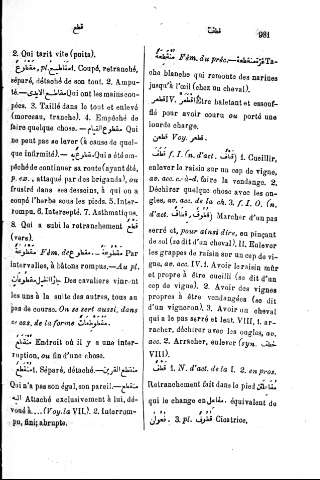 قطع
قطف
981
2. Qui tarit vite (puits).
مَقْطُوعٌ pl. مَقَاطِيعُ 1. Coupé, retranché,
séparé, détaché de son tout. 2. Ampu-
té.— مقاطيع الايدى Qui ont les mains cou-
pées. 3. Taillé dans le tout et enlevé
(morceau, tranche). 4. Empêché de
faire quelque chose. — مقطوع القيام Qui
ne peut pas se lever (à cause de quel-
que infirmité).— مقطوع به Qui a été em-
pêché de continuer sa route (ayant été,
p. ex., attaqué par des brigands), ou
frustré dans ses desseins, à qui on a
coupé l'herbe sous les pieds. 5. Inter-
rompu. 6. Intercepté. 7. Asthmatique.
8. Qui a subi le retranchement قَطْعٌ
(vers).
مَقْطُوعَةٌ Fém. de مقطوع.— مقطوعة Par
intervalles, à bâtons rompus.—Au pl.
جاءت الخيل مقطوطعات Des cavaliers vinrent
les uns à la suite des autres, tous au
pas de course. On se sert aussi, dans
ce cas, de la forme مقطوطعات
مُنْقَطَعٌ Endroit où il y a une inter-
ruption, ou fin d'une chose.
مُنْقَطِعٌ 1. Séparé, détaché.— منقطع القرين
Qui n'a pas son égal, son pareil.— منقطع
اليه Attaché exclusivement à lui, dé-
voué à.... (Voy. la VII.). 2. Interrom-
pu, fini; abrupte.
مُنْقَطِعَةٌ Fém. du préc.— غرّة منقطعة Ta-
che blanche qui remonte des narines
jusqu'à l'œil (chez un cheval).
V. اقطعرّ Être haletant et essouf-
flé pour avoir couru ou porté une
lourde charge.
قطعن Voy. قطعر.
قَطَفَ f. I. (n. d'act. قَطْفٌ) 1. Cueillir,
enlever le raisin sur un cep de vigne,
av. acc. c.-à-d. faire la vendange. 2.
Déchirer quelque chose avec les on-
gles, av. acc. de la ch. 3. f. I. O. (n.
d'act. قِطَافٌ, قُطُوفٌ) Marcher d'un pas
serré et, pour ainsi dire, en pinçant
de sol (se dit d'un cheval). II. Enlever
les grappes de raisin sur un cep de vi-
gne, av. acc. IV. 1. Avoir le raisin mûr
et propre à être cueilli (se dit d'un
cep de vigne). 2. Avoir des vignes
propres à être vendangées (se dit
d'un vigneron). 3. Avoir un cheval
qui a le pas serré et lent. VIII. 1. ar-
racher, déchirer avec les ongles, av.
acc. 2. Arracher, enlever (syn. خطف
VIII).
قَطْفٌ 1. N. d'act. de la I. 2. en pros.
Retranchement fait dans le pied مُفَاعَلَتُنْ
qui le change en مفاعل, équivalent de
فعولن. 3. pl. قُطُوفٌ Cicatrice.